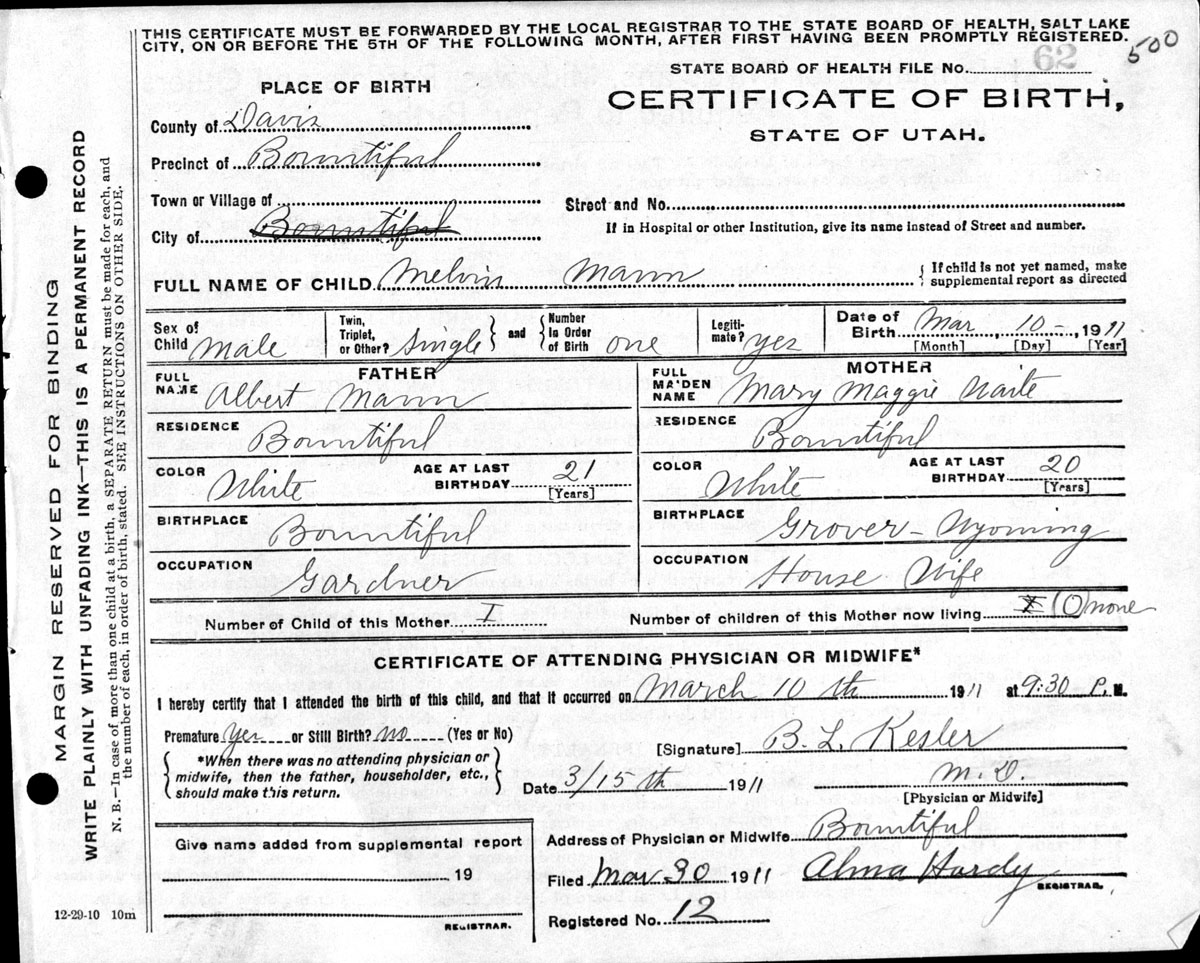 THIS CERTIFICATE MUST BE FORWARDED BY THE LOCAL REGISTRAR TO THE STATE BOARD OF HEALTH, SALT LAKE
CITY, ON OR BEFORE THE 5TH OF THE FOLLOWING MONTH, AFTER FIRST HAVING BEEN PROMPTLY REGISTERED.
500
STATE BOARD OF HEALTH FILE No. 62
PLACE OF BIRTH
CERTIFICATE OF BIRTH,
STATE OF UTAH.
County of Davis
Precinct of Bountiful
Town or Village of
Street and No.
City of Bountiful
If in Hospital or other Institution, give its name instead of Street and number.
FULL NAME OF CHILD Melvin Mann
{ If child is not yet named, make
supplemental report as directed
Sex of
Child Male
Twin,
Triplet,
or Other? Single
and
Number
In Order
of Birth one
Legiti-
mate? yes
Date of
Birth Mar 10 - 1911
[Month] [Day] [Year]
FATHER
FULL
NAME Albert Mann
MOTHER
FULL
MAIDEN
NAME Mary Maggie Waite
RESIDENCE Bountiful
RESIDENCE Bountiful
COLOR White
AGE AT LAST
BIRTHDAY 21
[Years]
COLOR White
AGE AT LAST
BIRTHDAY 20
[Years]
BIRTHPLACE Bountiful
BIRTHPLACE Grover - Wyoming
OCCUPATION Gardner
OCCUPATION House Wife
Number of Child of this Mother I
Number of children of this Mother now living (0) none
CERTIFICATE OF ATTENDING PHYSICIAN OR MIDWIFE*
I hereby certify that I attended the birth of this child, and that it occurred on March 10 th 1911 at 9:30 P. M.
Premature yes or Still Birth? no (Yes or No)
[Signature] B. L. Kesler
*When there was no attending physician or
midwife, then the father, householder, etc.,
should make this return.
Date 3/15 th 1911
M.D.
[Physician or Midwife]
Give name added from supplemental report
19
REGISTRAR.
Address of Physician or Midwife Bountiful
Filed Mar 30 1911 Alma Hardy
REGISTRAR.
Registered No. 12
12-29-10 10m
MARGIN RESERVED FOR BINDING
WRITE PLAINLY WITH UNFADING INK—THIS IS A PERMANENT RECORD
N. B.—In case of more than one child at a birth, a SEPARATE RETURN must be made for each, and
the number of each, in order of birth, stated. SEE INSTRUCTIONS ON OTHER SIDE.